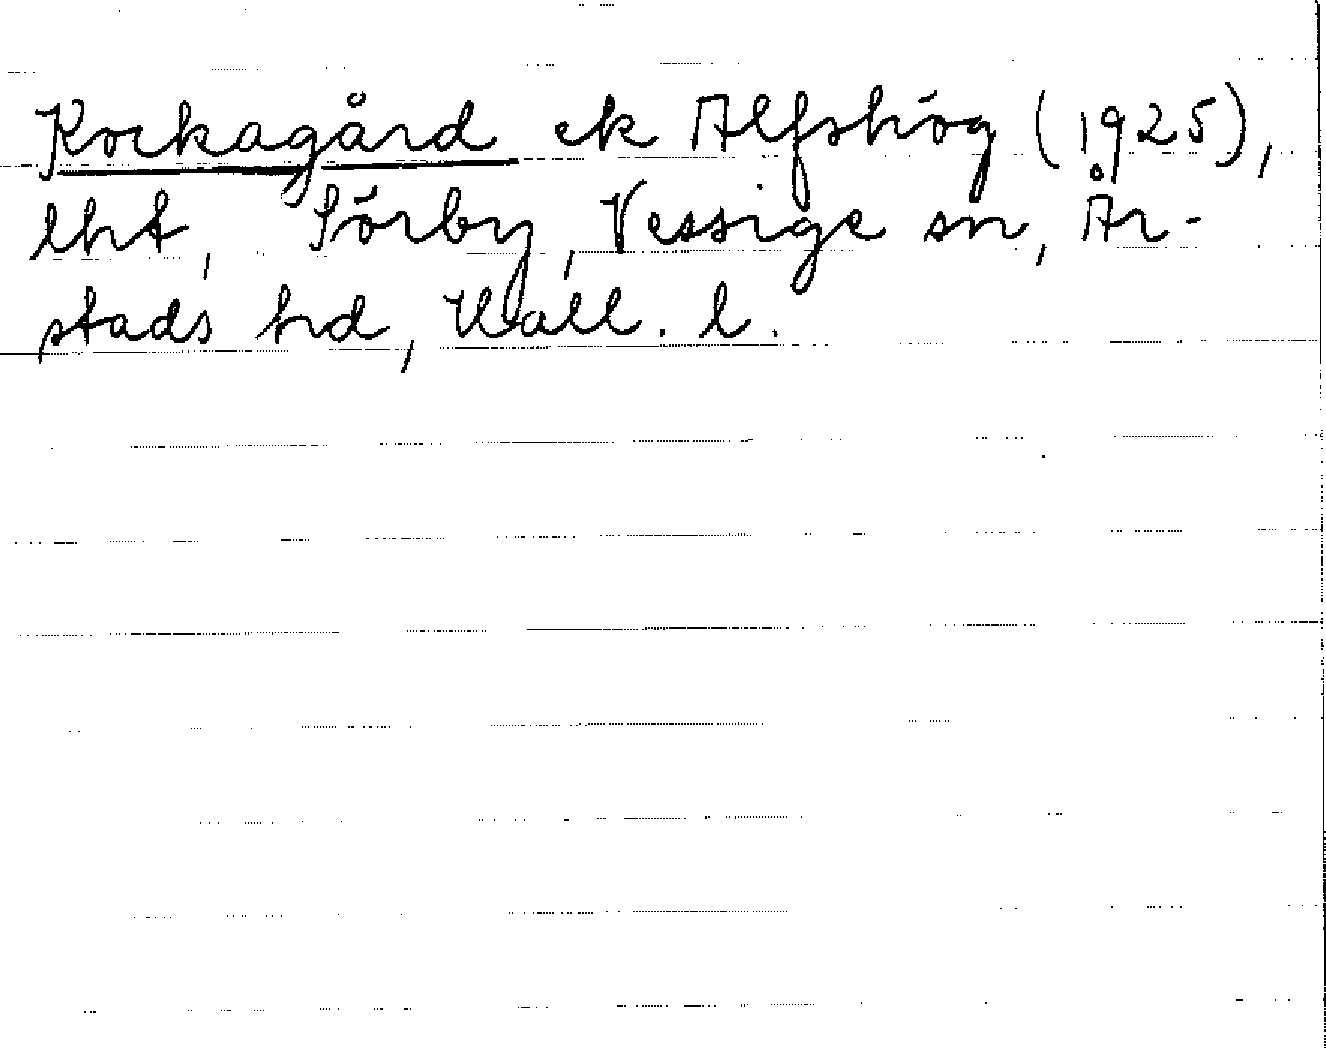 Kockagård ek Alfshög (1925),
lht, Sörby, Vessige sn, År-
stads hd, Hall. l.